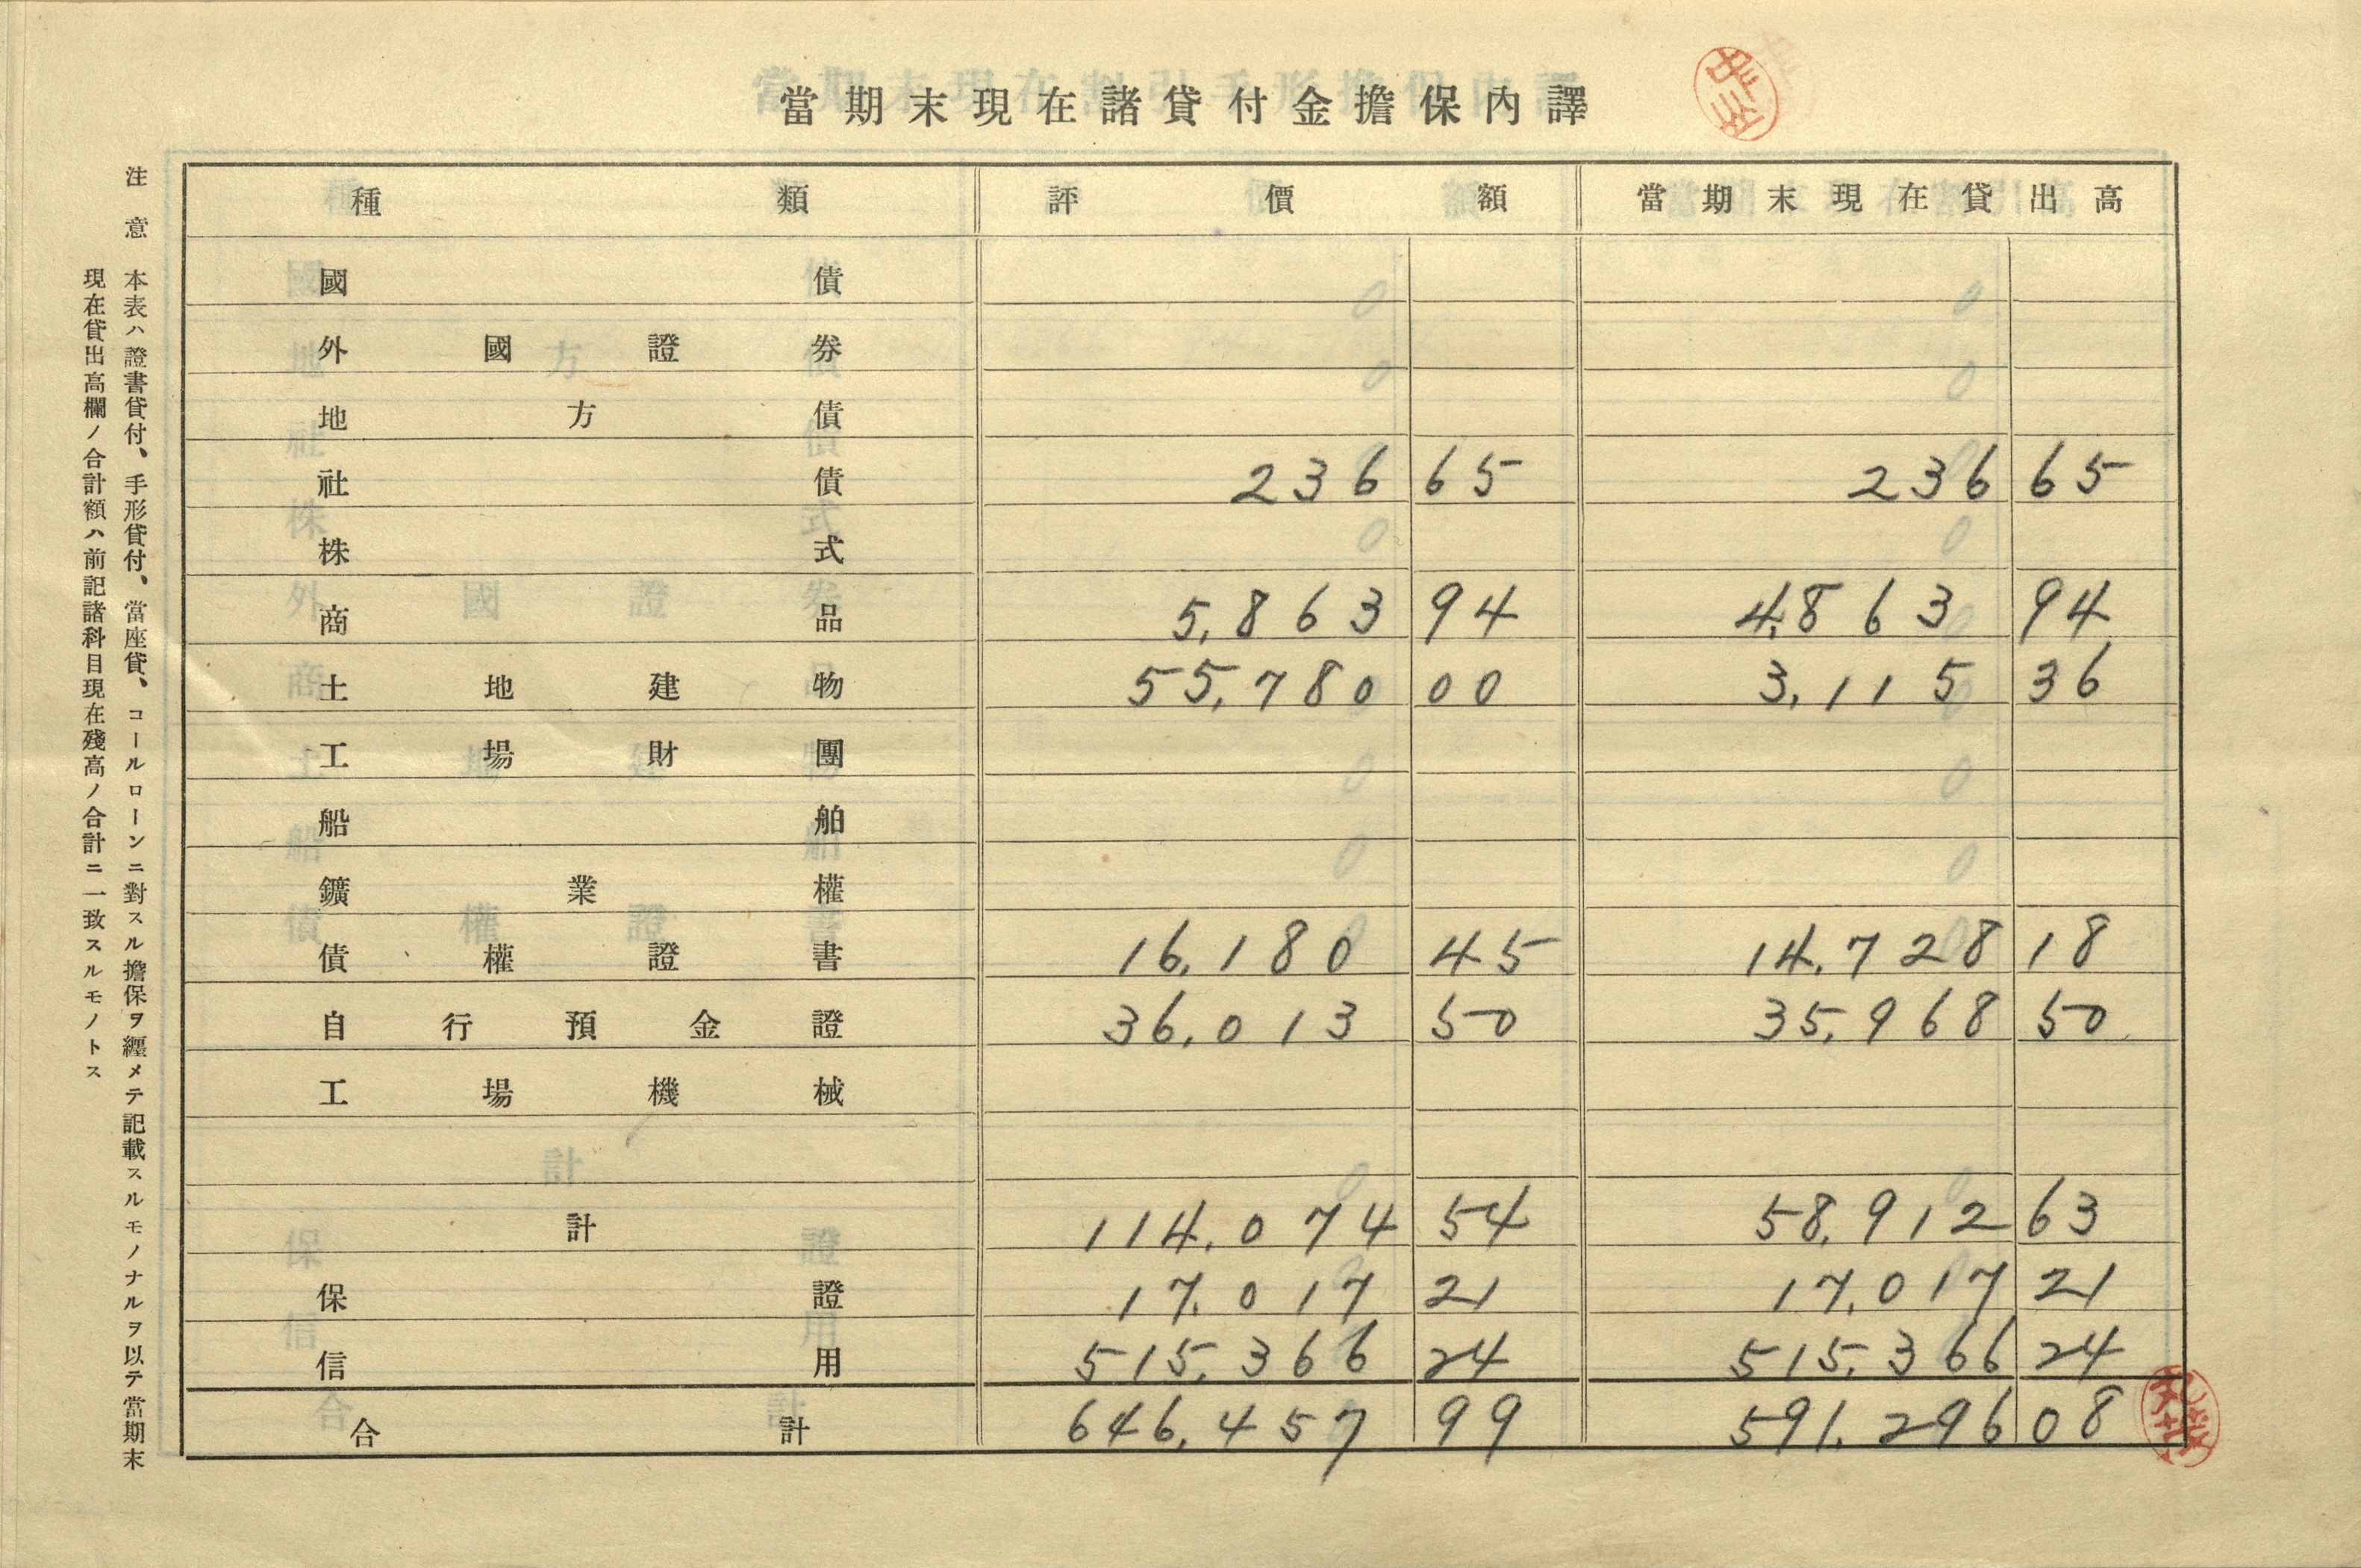 當期末現在諸貸付金擔保內譯
種類 評價額 當期末現在貸出高
國債
外國證券
地方債
社債 236 65 236 65
株式
商品 5,863 94 4,863 94
土地建物 55,780 00 3,115 36
工場財團
船舶
鑛業權
債權證書 16,180 45 14,728 18
自行預金證 36,013 50 35,968 50
工場機械
計 114,074 54 58,912 63
保證 17,017 21 17,017 21
信用 515,366 24 515,366 24
合計 646,457 99 591,296 08
注意 本表ハ證書貸付、手形貸付、當座貸、コールローンニ對スル擔保ヲ纒メテ記載スルモノナルヲ以テ當期末
現在貸出高欄ノ合計額ハ前記諸科目現在殘高ノ合計ニ一致スルモノトス